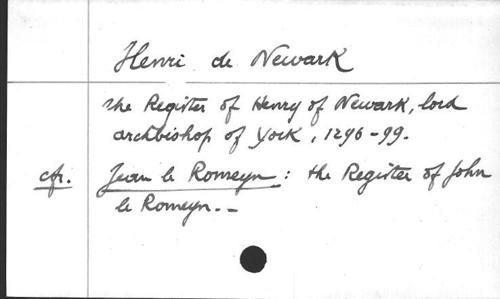 Henri de Newark
the Register of Henry of Newark, lord
archbishop of York, 1296-99.
cfr. Jean le Romeyn : the Register of John
le Romeyn. _